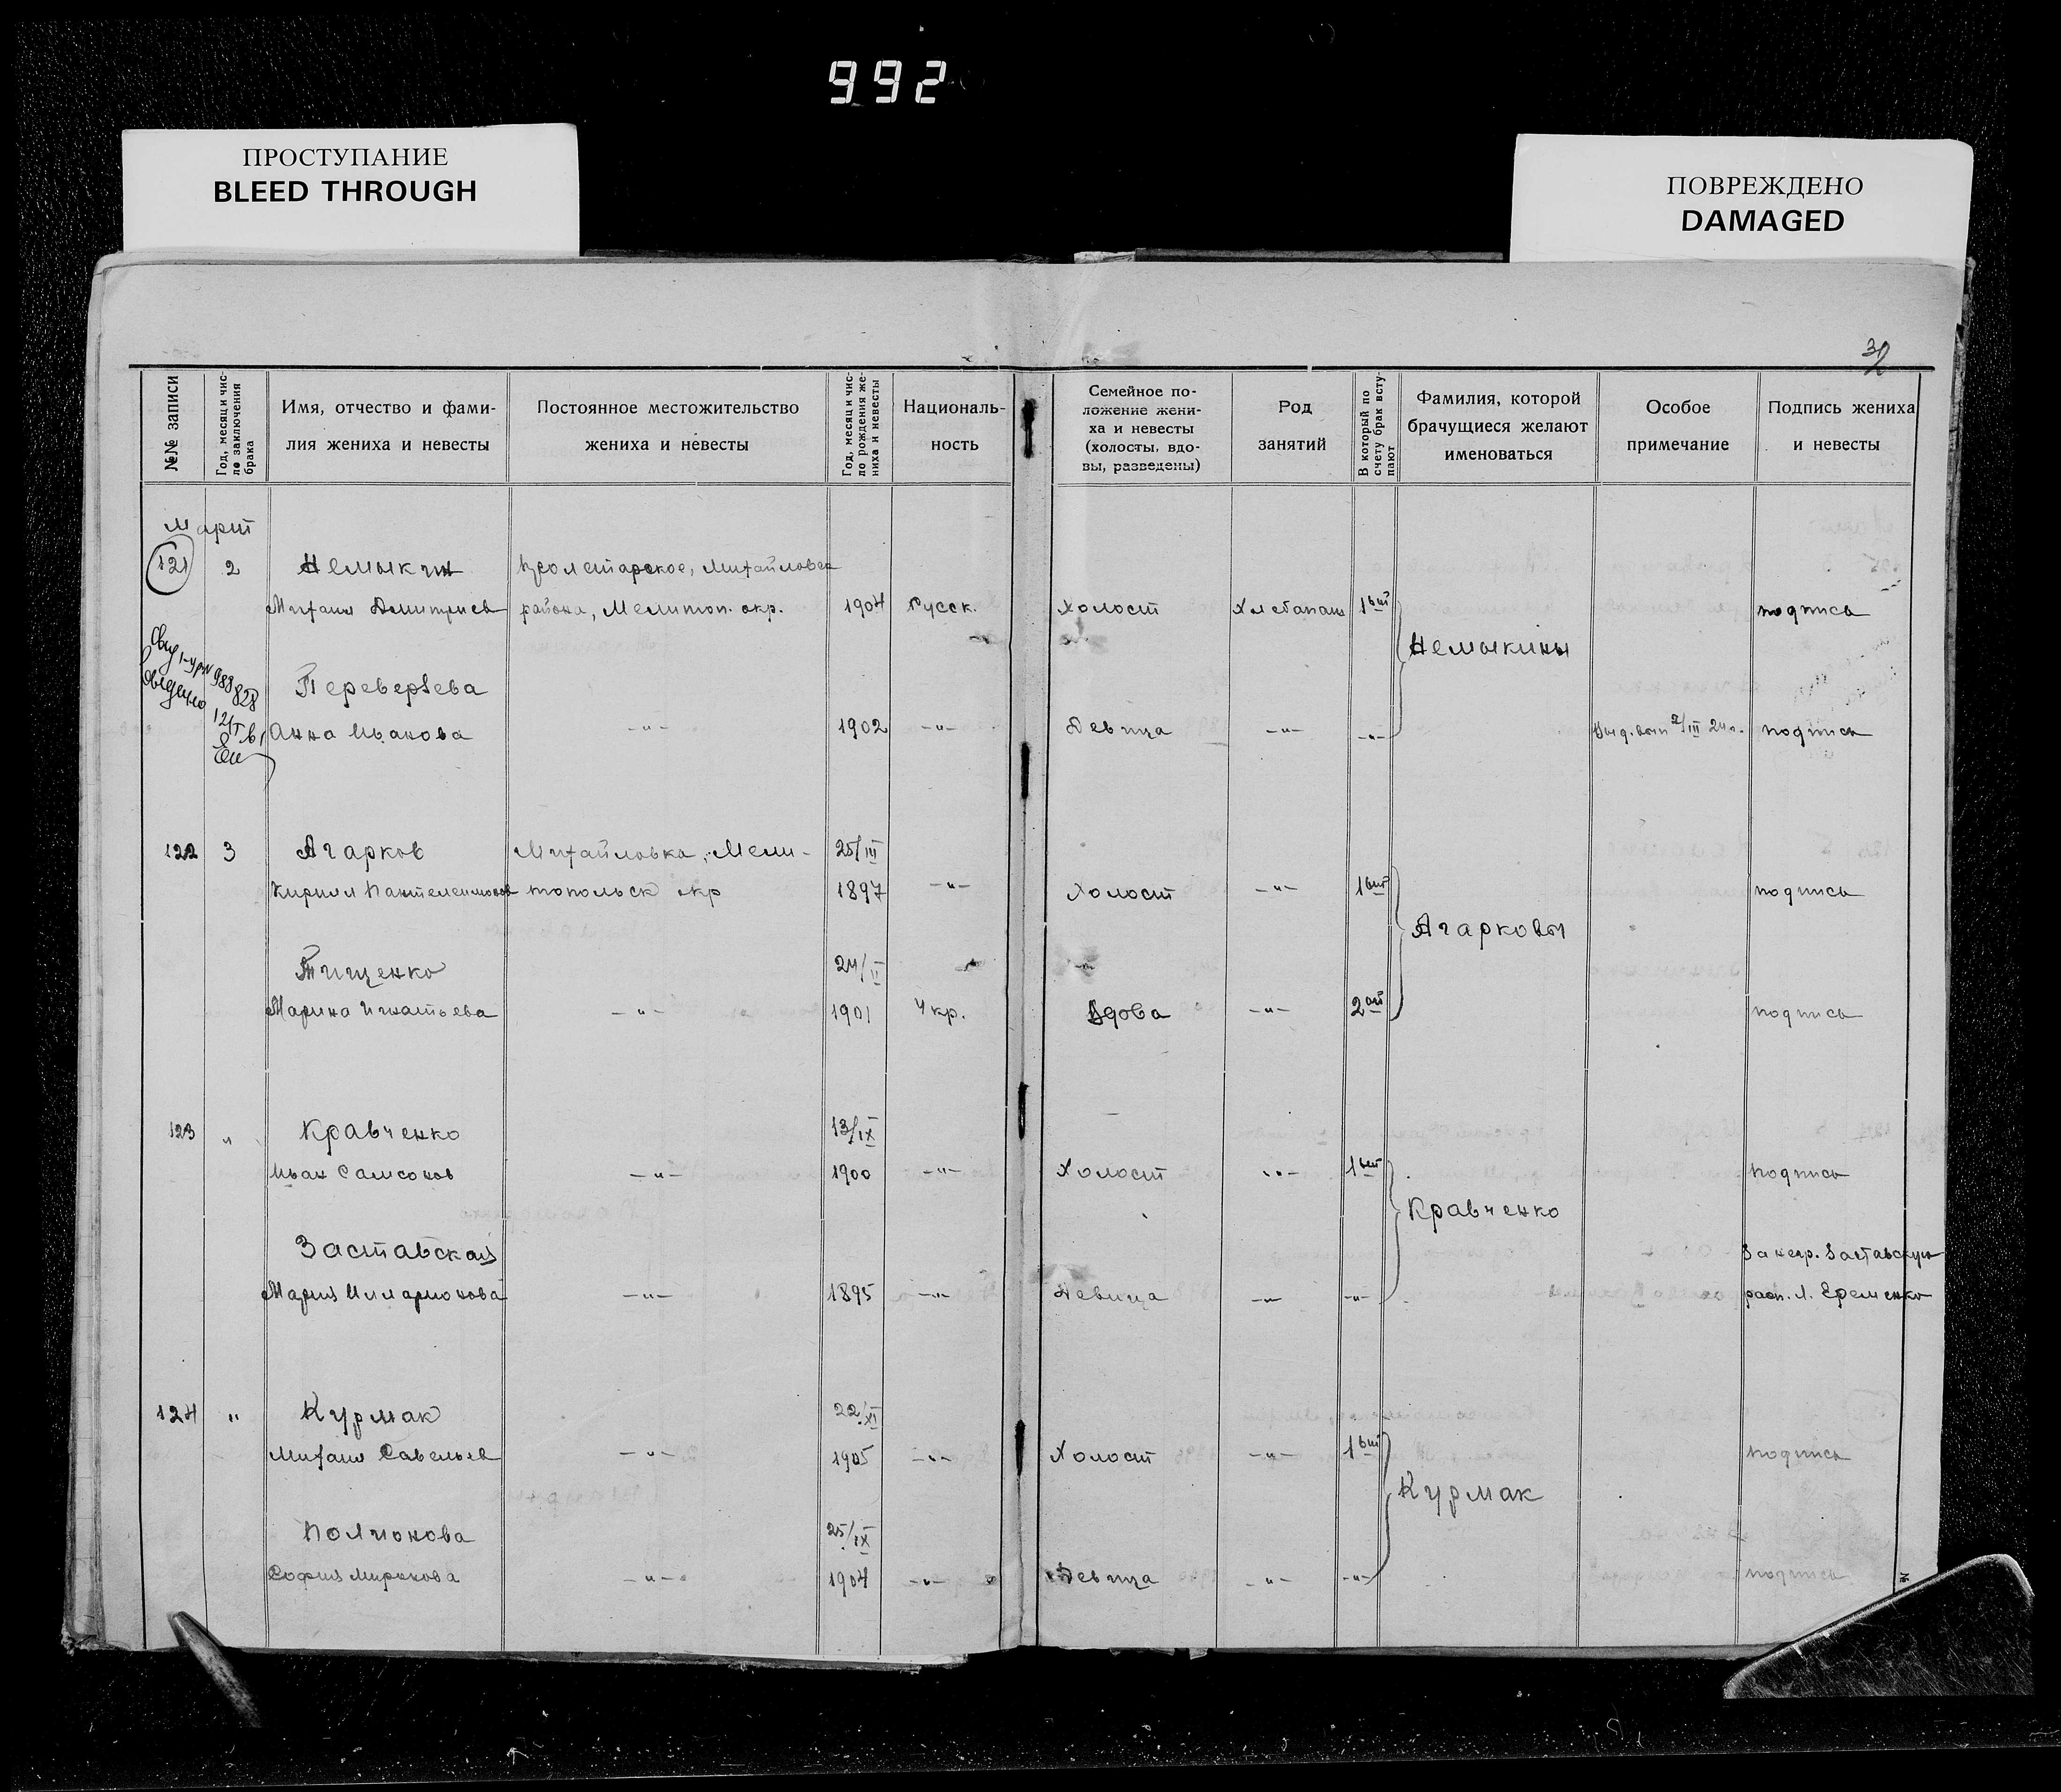 992
ПРОСТУПАНИЕ
BLEED THROUGH
ПОВРЕЖДЕНО
DAMAGED
32
№№ записи
Год, месяц и чис-
ло заключения
брака
Имя, отчество и фами-
лия жениха и невесты
Постоянное местожительство
жениха и невесты
Год, месяц и чис-
ло рождения же-
ниха и невесты
Националь-
ность
Семейное по-
ложение жени-
ха и невесты
(холосты, вдо-
вы, разведены)
Род
занятий
В который по
счету брак всту-
пают
Фамилия, которой
брачущиеся желают
именоваться
Особое
примечание
Подпись жениха
и невесты
Март
121 2 Немыкин Михайловск
Михаил Дмитриев района, Мелитоп. окр. 1904 Русск. Холост Хлебопаш 1ый подпись
Немыкины
988828
Переверзева
Анна Иванова -"- 1902 -"- Девица -"- -"- 2/III 24г. подпись
122 3 Агарков Михайловка, Мели- 25/III
Кирилл Пантелеимонов топольск окр 1897 -"- Холост -"- 1ый подпись
Агарковы
Тищенко 24/II
Марина Игнатьева -"- 1901 Укр. Вдова -"- 2ой подпись
123 " Кравченко 13/IX
Иван Самсонов -"- 1900 -"- Холост -"- 1ый подпись
Кравченко
Заставская За негр. Заставскую
Мария Илларионова -"- 1895 -"- Девица -"- -"- расп. Л. Еременко
124 " Курмак 22/XI
Михаил Савельев -"- 1905 -"- Холост -"- 1ый подпись
Курмак
Полионова 25/IX
София Миронова -"- 1904 -"- Девица -"- -"- подпись
№